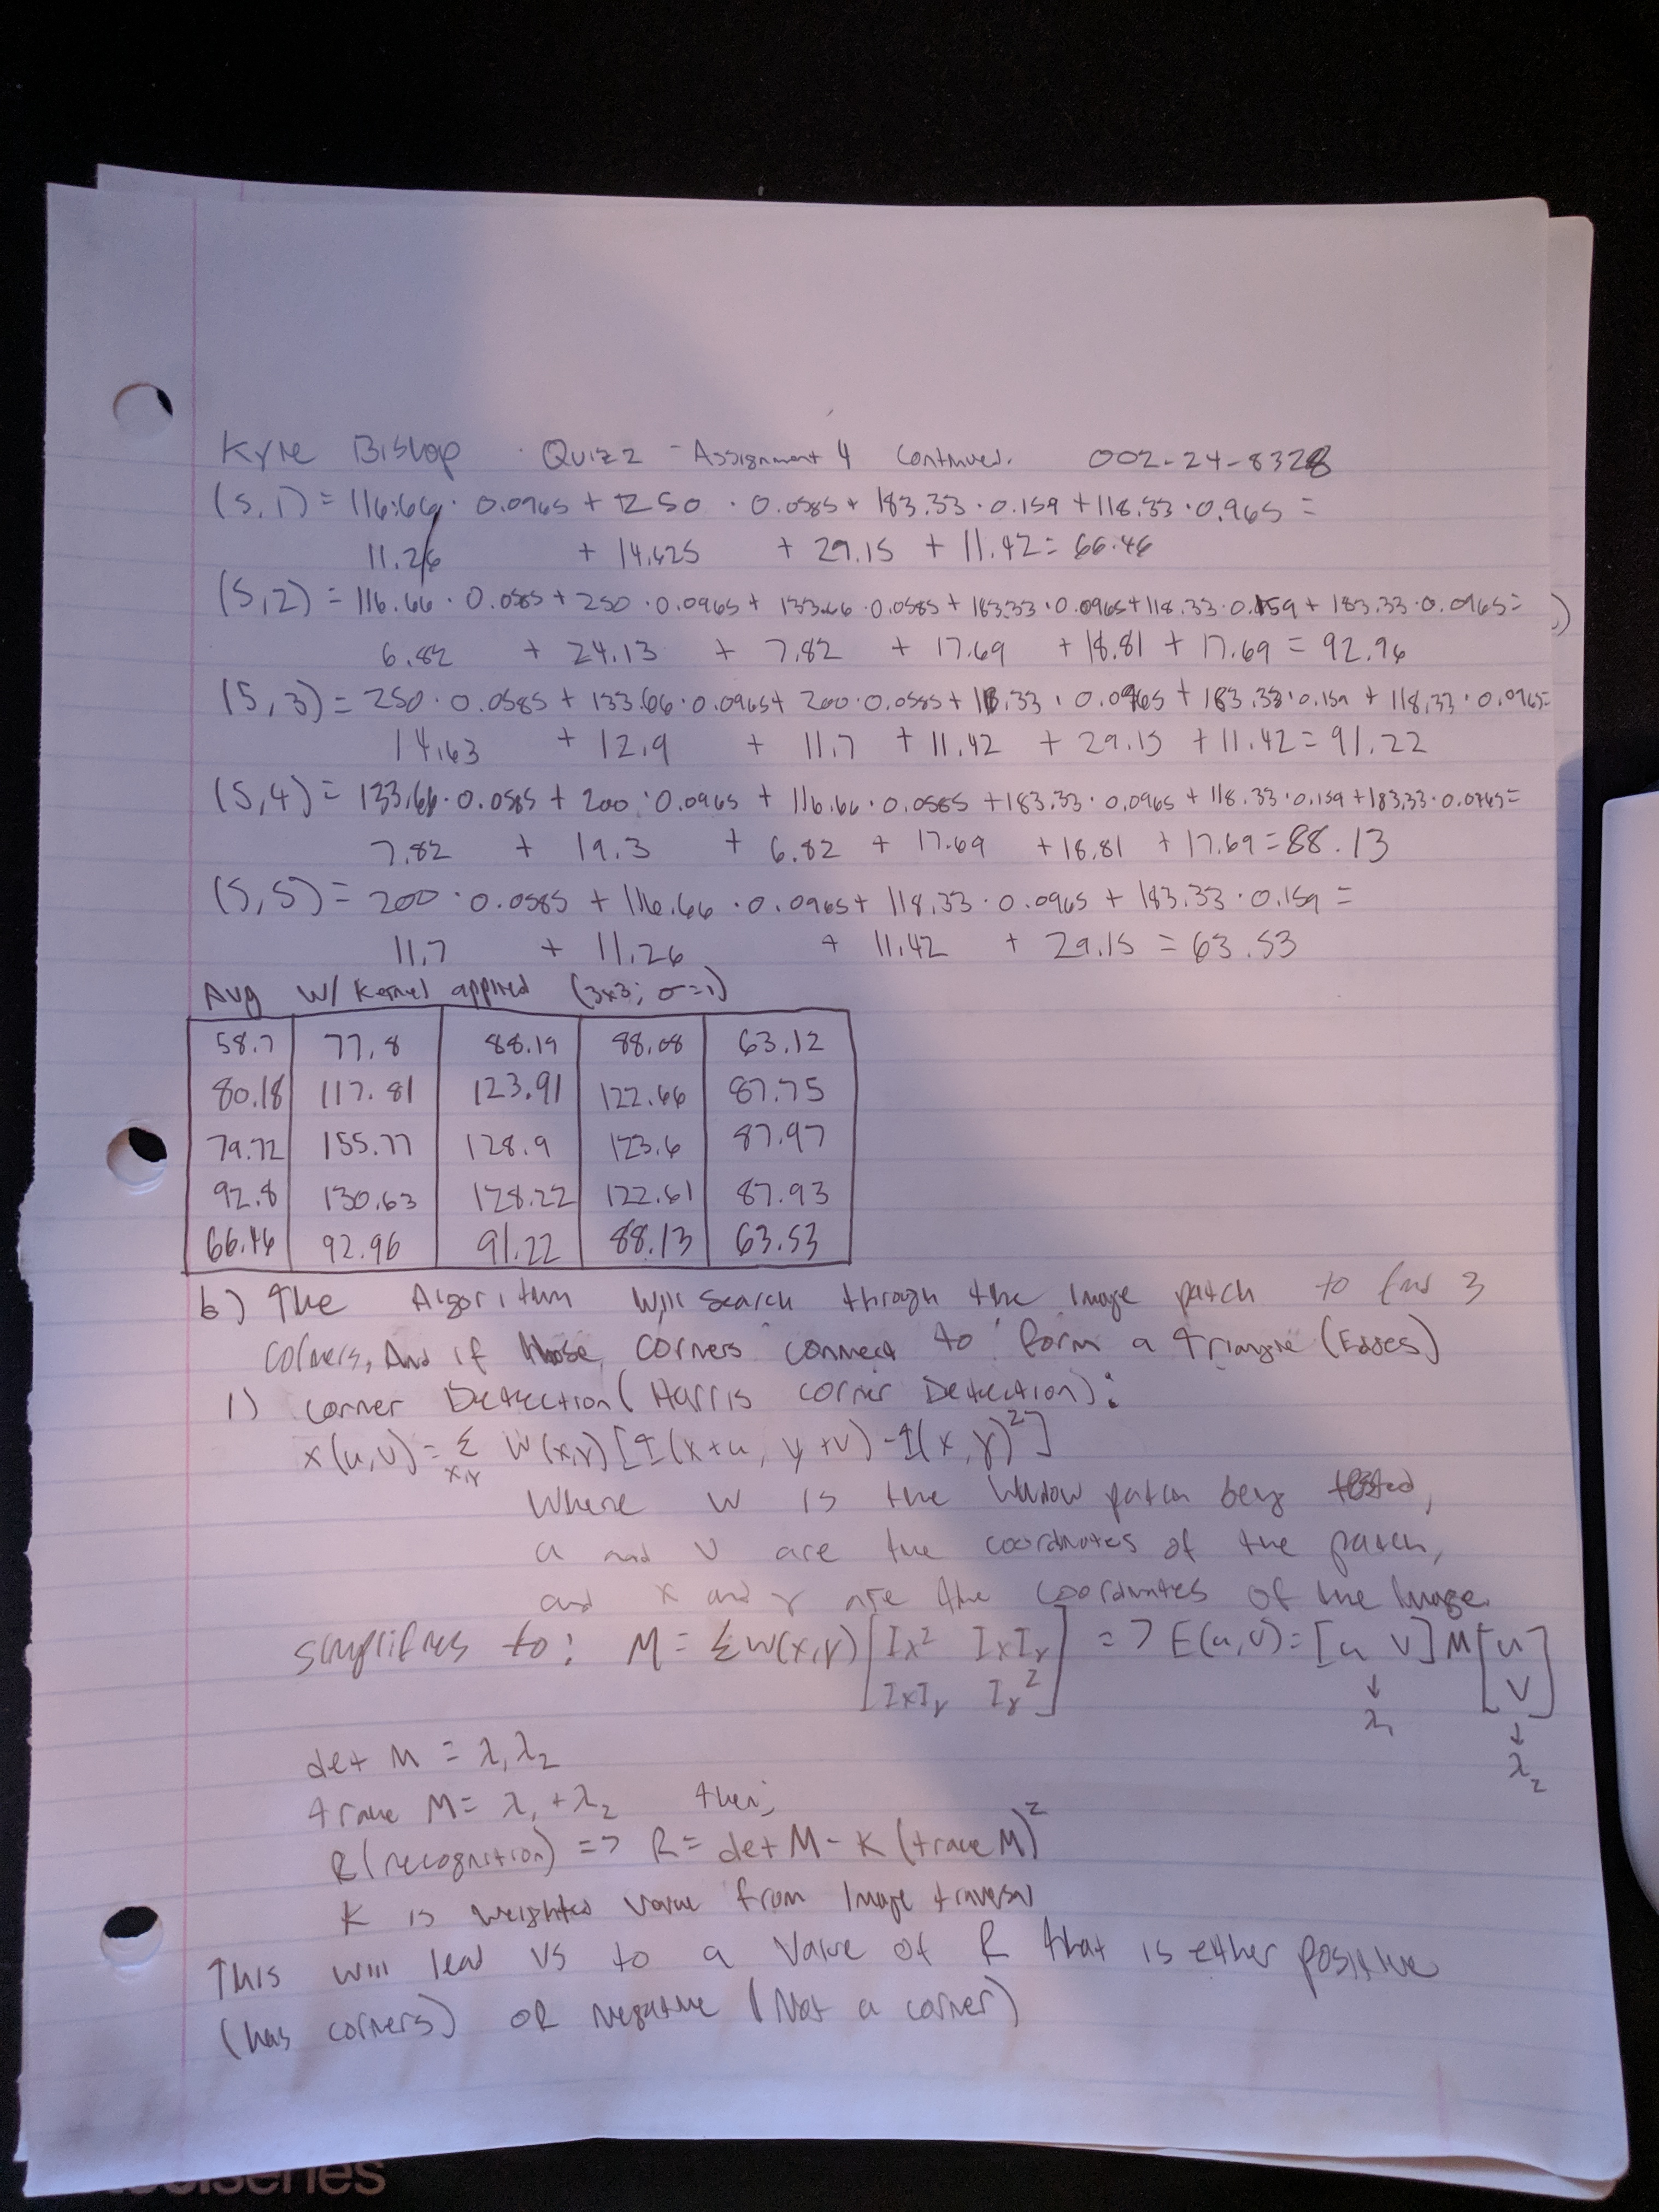 Kyle Bishop Quiz 2 - Assignment 4 Continued. 002-24-8328
(5,1) = 116.66 · 0.0965 + 250 · 0.0585 + 183.33 · 0.159 + 118.33 · 0.965 =
11.26 + 14.625 + 29.15 + 11.42 = 66.46
(5,2) = 116.66 · 0.0585 + 250 · 0.0965 + 133.66 · 0.0585 + 183.33 · 0.0965 + 118.33 · 0.159 + 183.33 · 0.0965 =
6.82 + 24.13 + 7.82 + 17.69 + 18.81 + 17.69 = 92.96
(5,3) = 250 · 0.0585 + 133.66 · 0.0965 + 200 · 0.0585 + 118.33 · 0.0965 + 183.33 · 0.159 + 118.33 · 0.0965 =
14.63 + 12.9 + 11.7 + 11.42 + 29.15 + 11.42 = 91.22
(5,4) = 133.66 · 0.0585 + 200 · 0.0965 + 116.66 · 0.0585 + 183.33 · 0.0965 + 118.33 · 0.159 + 183.33 · 0.0965 =
7.82 + 19.3 + 6.82 + 17.69 + 18.81 + 17.69 = 88.13
(5,5) = 200 · 0.0585 + 116.66 · 0.0965 + 118.33 · 0.0965 + 183.33 · 0.159 =
11.7 + 11.26 + 11.42 + 29.15 = 63.53
Avg w/ Kernel applied (3x3; σ=1)
58.7 77.8 88.19 88.08 63.12
80.18 117.81 123.91 122.66 87.75
79.72 155.77 128.9 123.6 87.97
92.8 130.63 128.22 122.61 87.93
66.46 92.96 91.22 88.13 63.53
b) The Algorithm will search through the image patch to find 3
corners, And if those corners connect to form a triangle (Edges)
1) Corner Detection (Harris corner Detection):
x(u,v) = Σ W(x,y) [I(x+u, y+v) - I(x,y)²]
x,y
Where W is the window patch being tested,
u and v are the coordinates of the patch,
and x and y are the coordinates of the image.
Simplifies to: M = Σw(x,y) [Ix² IxIy => E(u,v) = [u v] M [u
IxIy Iy²] v]
↓ λ₁ ↓ λ₂
det M = λ₁λ₂
trace M = λ₁ + λ₂ then;
R(recognition) => R = det M - K (trace M)²
K is weighted value from image traversal
This will lead us to a value of R that is either positive
(has corners) or negative (Not a corner)
series